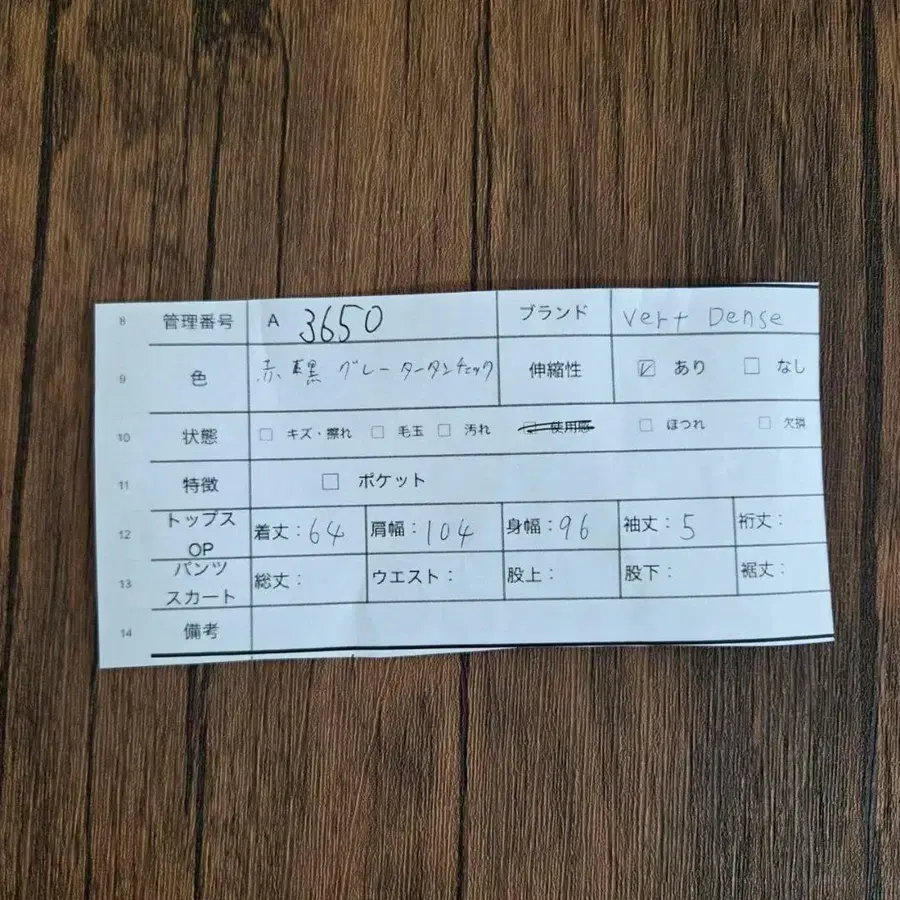 8 管理番号 A 3650 ブランド Vert Dense
9 色 赤 黒 グレータータンチェック 伸縮性 ☑ あり □ なし
10 状態 □ キズ・擦れ □ 毛玉 □ 汚れ □ 使用感 □ ほつれ □ 欠損
11 特徴 □ ポケット
12 トップス OP 着丈:64 肩幅:104 身幅:96 袖丈:5 裄丈:
13 パンツ スカート 総丈: ウエスト: 股上: 股下: 裾丈:
14 備考